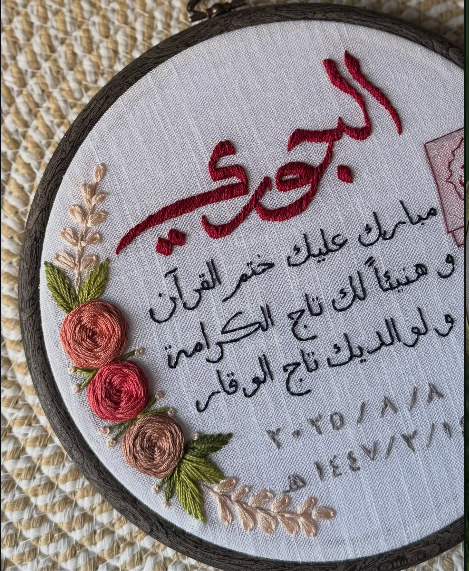 الجوري
مبارك عليك ختم القرآن
و هنيئاً لك تاج الكرامة
و لوالديك تاج الوقار
٢٠٢٥ / ٨ / ٨
١٤٤٧/٢/١٤ هـ